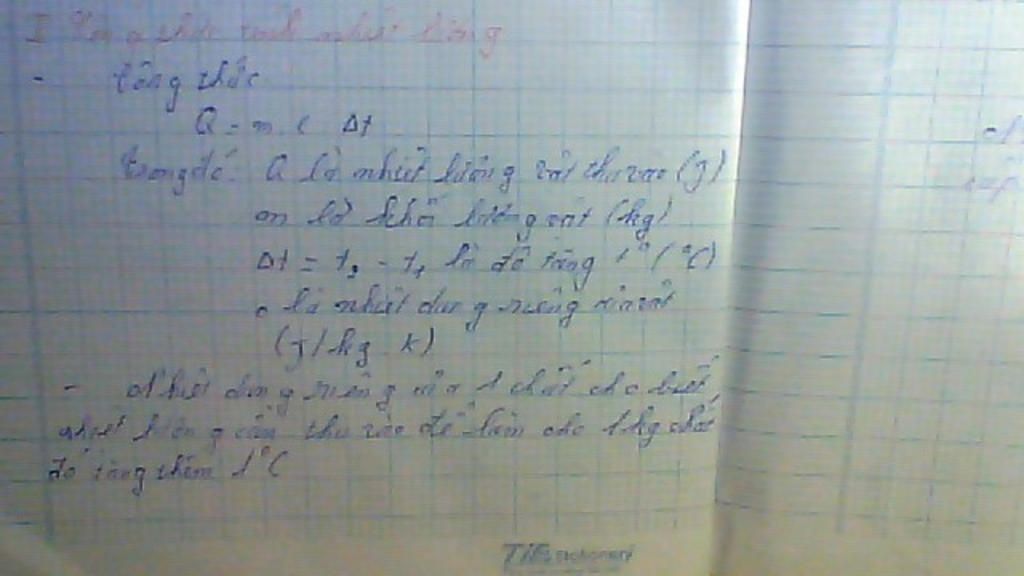 I Công thức tính nhiệt lượng
- Công thức
Q = m . c Δt
trong đó: Q là nhiệt lượng vật thu vào (J)
m là khối lượng vật (kg)
Δt = t₂ - t₁ là độ tăng t° (°C)
c là nhiệt dung riêng của vật
(J/kg K)
- Nhiệt dung riêng của 1 chất cho biết
nhiệt lượng cần thu vào để làm cho 1kg chất
đó tăng thêm 1°C
TiTi